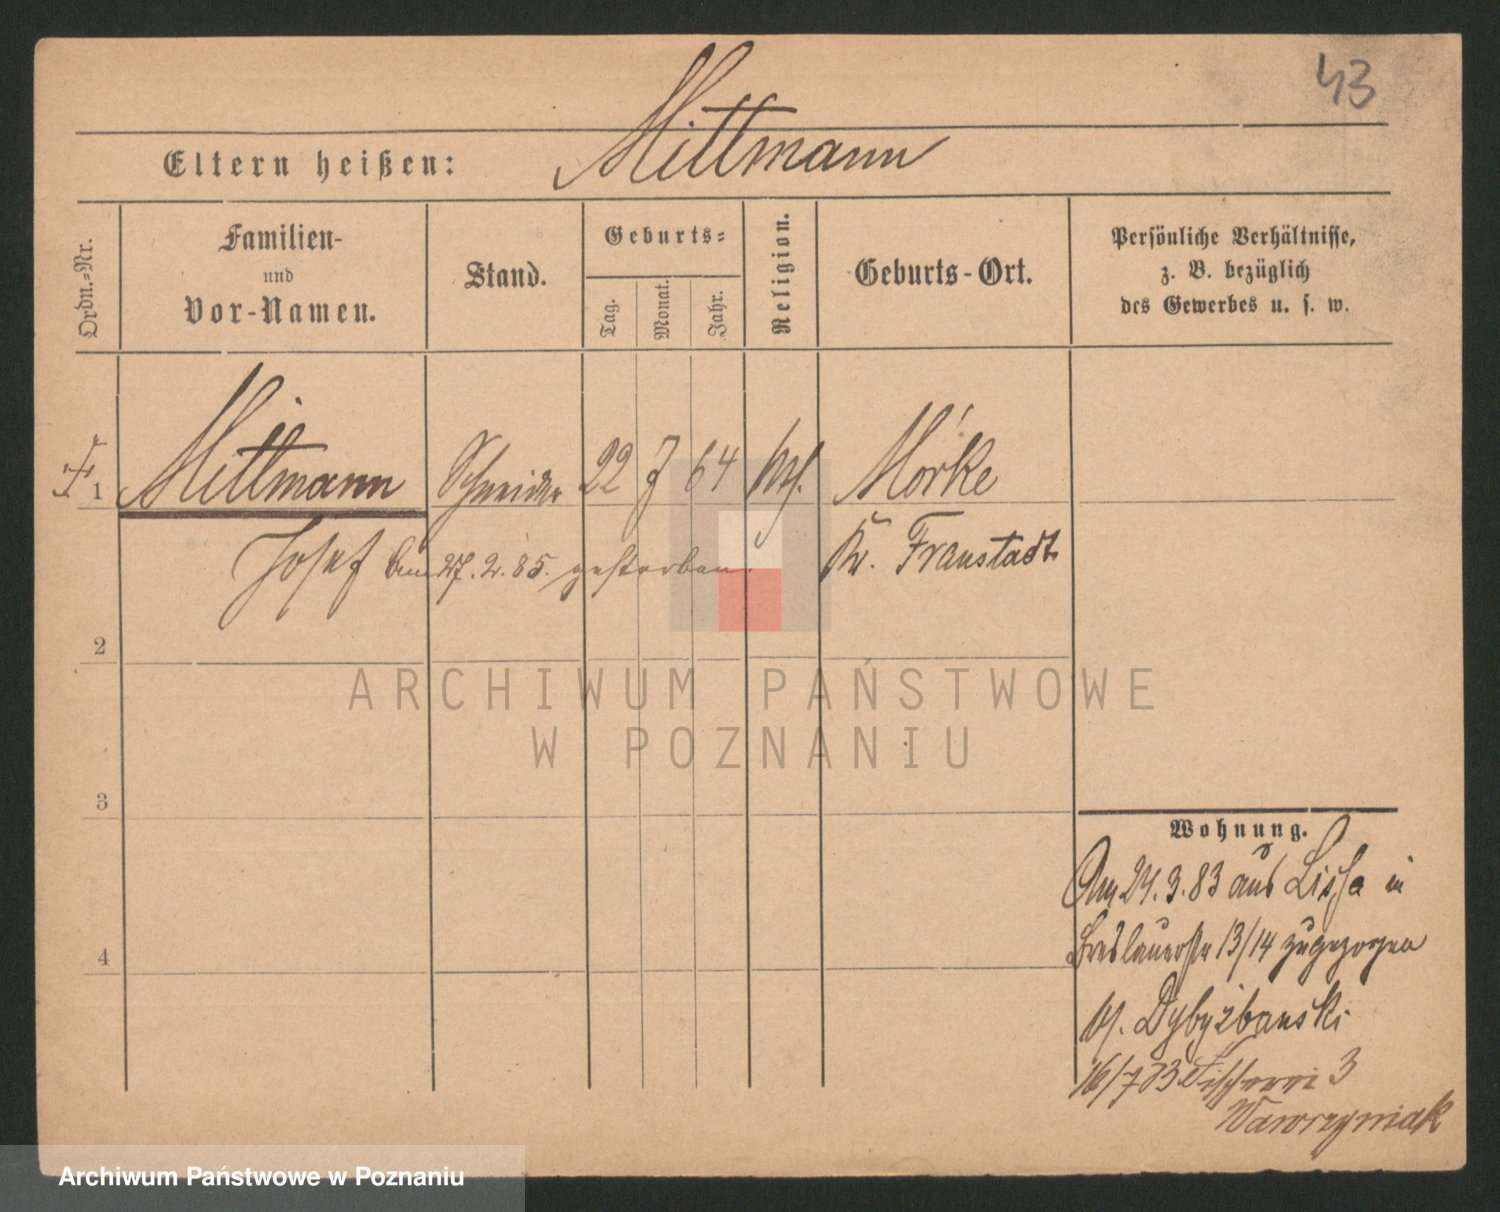 43
Mittmann
Eltern heißen:
Ordn.-Nr.
Familien-
und
Vor-Namen.
Stand.
Geburts-
Tag.
Monat.
Jahr.
Religion.
Geburts-Ort.
Persönliche Verhältnisse,
z. B. bezüglich
des Gewerbes u. s. w.
1 Mittmann Schneider 22 7 64 Mörke
Josef am 27.2.85. gestorben Kr. Fraustadt
2
3
4
Wohnung.
Am 24.3.83 aus Lissa in
Breslauerstr 13/14 zugezogen
b/. Dybizbanski
16/7 83 Fischerei 3
Wawrzyniak
ARCHIWUM PAŃSTWOWE
W POZNANIU
Archiwum Państwowe w Poznaniu